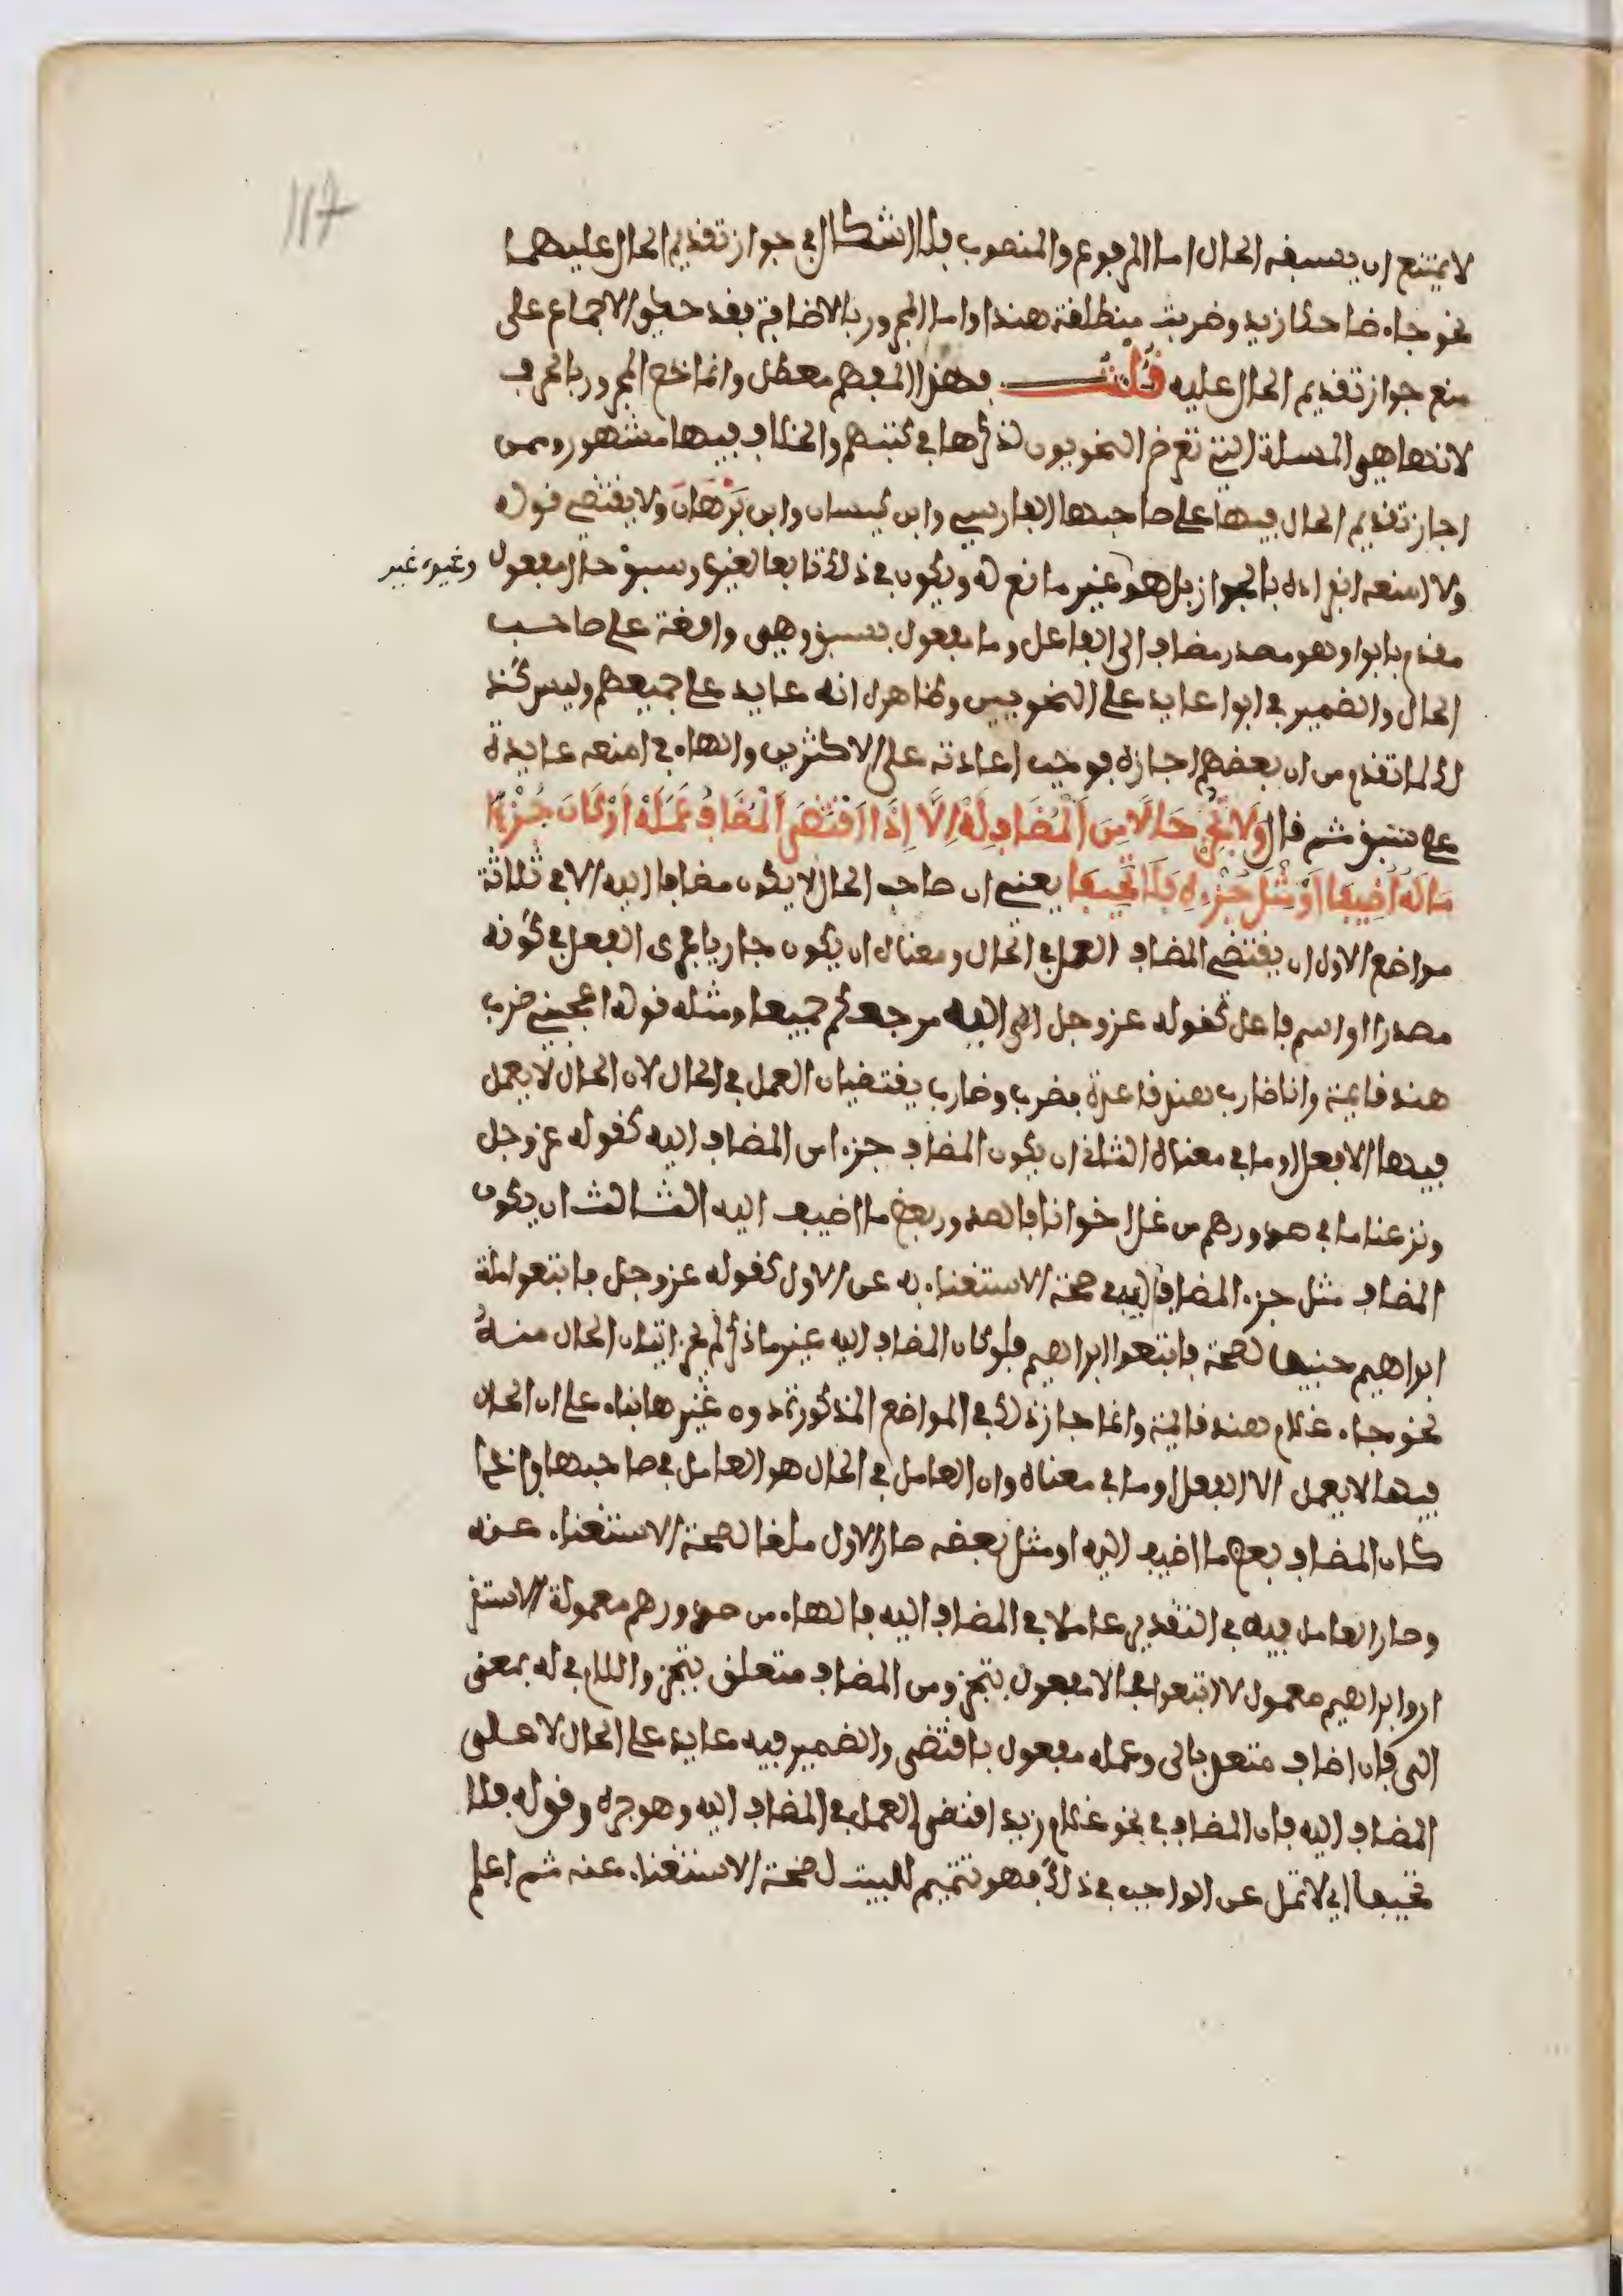 117
لا يمتنع ان يسبقه الحال اما المرفوع والمنصوب فلا اشكال في جواز تقديم الحال عليهما
نحو جاء ضاحكا زيد وضربت منطلقة هندا واما المجرور بالاضافة فقد حكي الاجماع على
منع جواز تقديم الحال عليه قلت فهذا المفهم معطل وانما خص المجرور بالحرف
لانها هي المسلة التي تعرض النحويون لذكرها في كتبهم والخلاف فيها مشهور وممن
اجاز تقديم الحال فيها على صاحبها الفارسي وابن كيسان وابن بَرْهَان ولا يقتضي قوله
ولا امنعه انفراده بالجواز بل هو غير مانع له ويكون في ذلك تابعا لغيره وسبق حال مفعول وغيره غير
مقدم بابوا وهو مصدر مضاف الى الفاعل وما مفعول بسبق وهي واقعة على صاحب
الحال والضمير في ابوا عايد على النحويين وظاهره انه عايد على جميعهم وليس كذ
لك لما تقدم من ان بعضهم اجازه فوجب اعادته على الاكثرين والهاء في امنعه عايدة
على سبق ثم قال وَلَا تُجِزْ حَالًا مِنَ الْمُضَافِ لَهُ إِلَّا إِذَا اقْتَضَى الْمُضَافُ عَمَلَهْ أَوْ كَانَ جُزْءَ
مَا لَهُ أُضِيفَا أَوْ مِثْلَ جُزْءِهِ فَلَا تَحِيفَا يعني ان صاحب الحال لا يكون مضافا اليه الا في ثلاثة
مواضع الاول ان يقتضي المضاف العمل في الحال ومعناه ان يكون جاريا مجرى الفعل في كونه
مصدرا او اسم فاعل كقوله عز وجل الى الله مرجعكم جميعا ومثله قوله اعجبني ضرب
هند قايمة وانا ضارب هند قاعدة فضرب وضارب يقتضيان العمل في الحال لان الحال لا يعمل
فيها الا فعل او ما في معناه الثاني ان يكون المضاف جزءا من المضاف اليه كقوله عز وجل
ونزعنا ما في صدورهم من غل اخوانا فالصدور بعض ما اضيف اليه الثالث ان يكون
المضاف مثل جزء المضاف اليه في صحة الاستغناء به عن الاول كقوله عز وجل فاتبعوا ملة
ابراهيم حنيفا لصحة فاتبعوا ابراهيم فلو كان المضاف اليه غير ما ذكر لم يجز اتيان الحال منه
نحو جاء غلام هند قايمة وانما جاز ذلك في المواضع المذكورة دون غيرها بناء على ان الحال
فيها لا يعمل الا الفعل او ما في معناه وان العامل في الحال هو العامل في صاحبها واذا
كان المضاف بعض ما اضيف اليه او مثل بعضه صار الاول ملغا لصحة الاستغناء عنه
وصار العامل فيه في التقدير عاملا في المضاف اليه فالهاء من صدورهم معمولة الاستقر
ار وابراهيم معمول لاتبعوا فحالا مفعول بتجز ومن المضاف متعلق بتجز واللام في له بمعنى
الى فان اضاف متعد بالى وعمله مفعول باقتضى والضمير فيه عايد على الحال لا على
المضاف اليه فان المضاف في نحو غلام زيد اقتضى العمل في المضاف اليه وهو جره وقوله فلا
تحيفا اي لا تمل عن الواجب في ذلك فهو تتميم للبيت لصحة الاستغناء عنه ثم اعلم